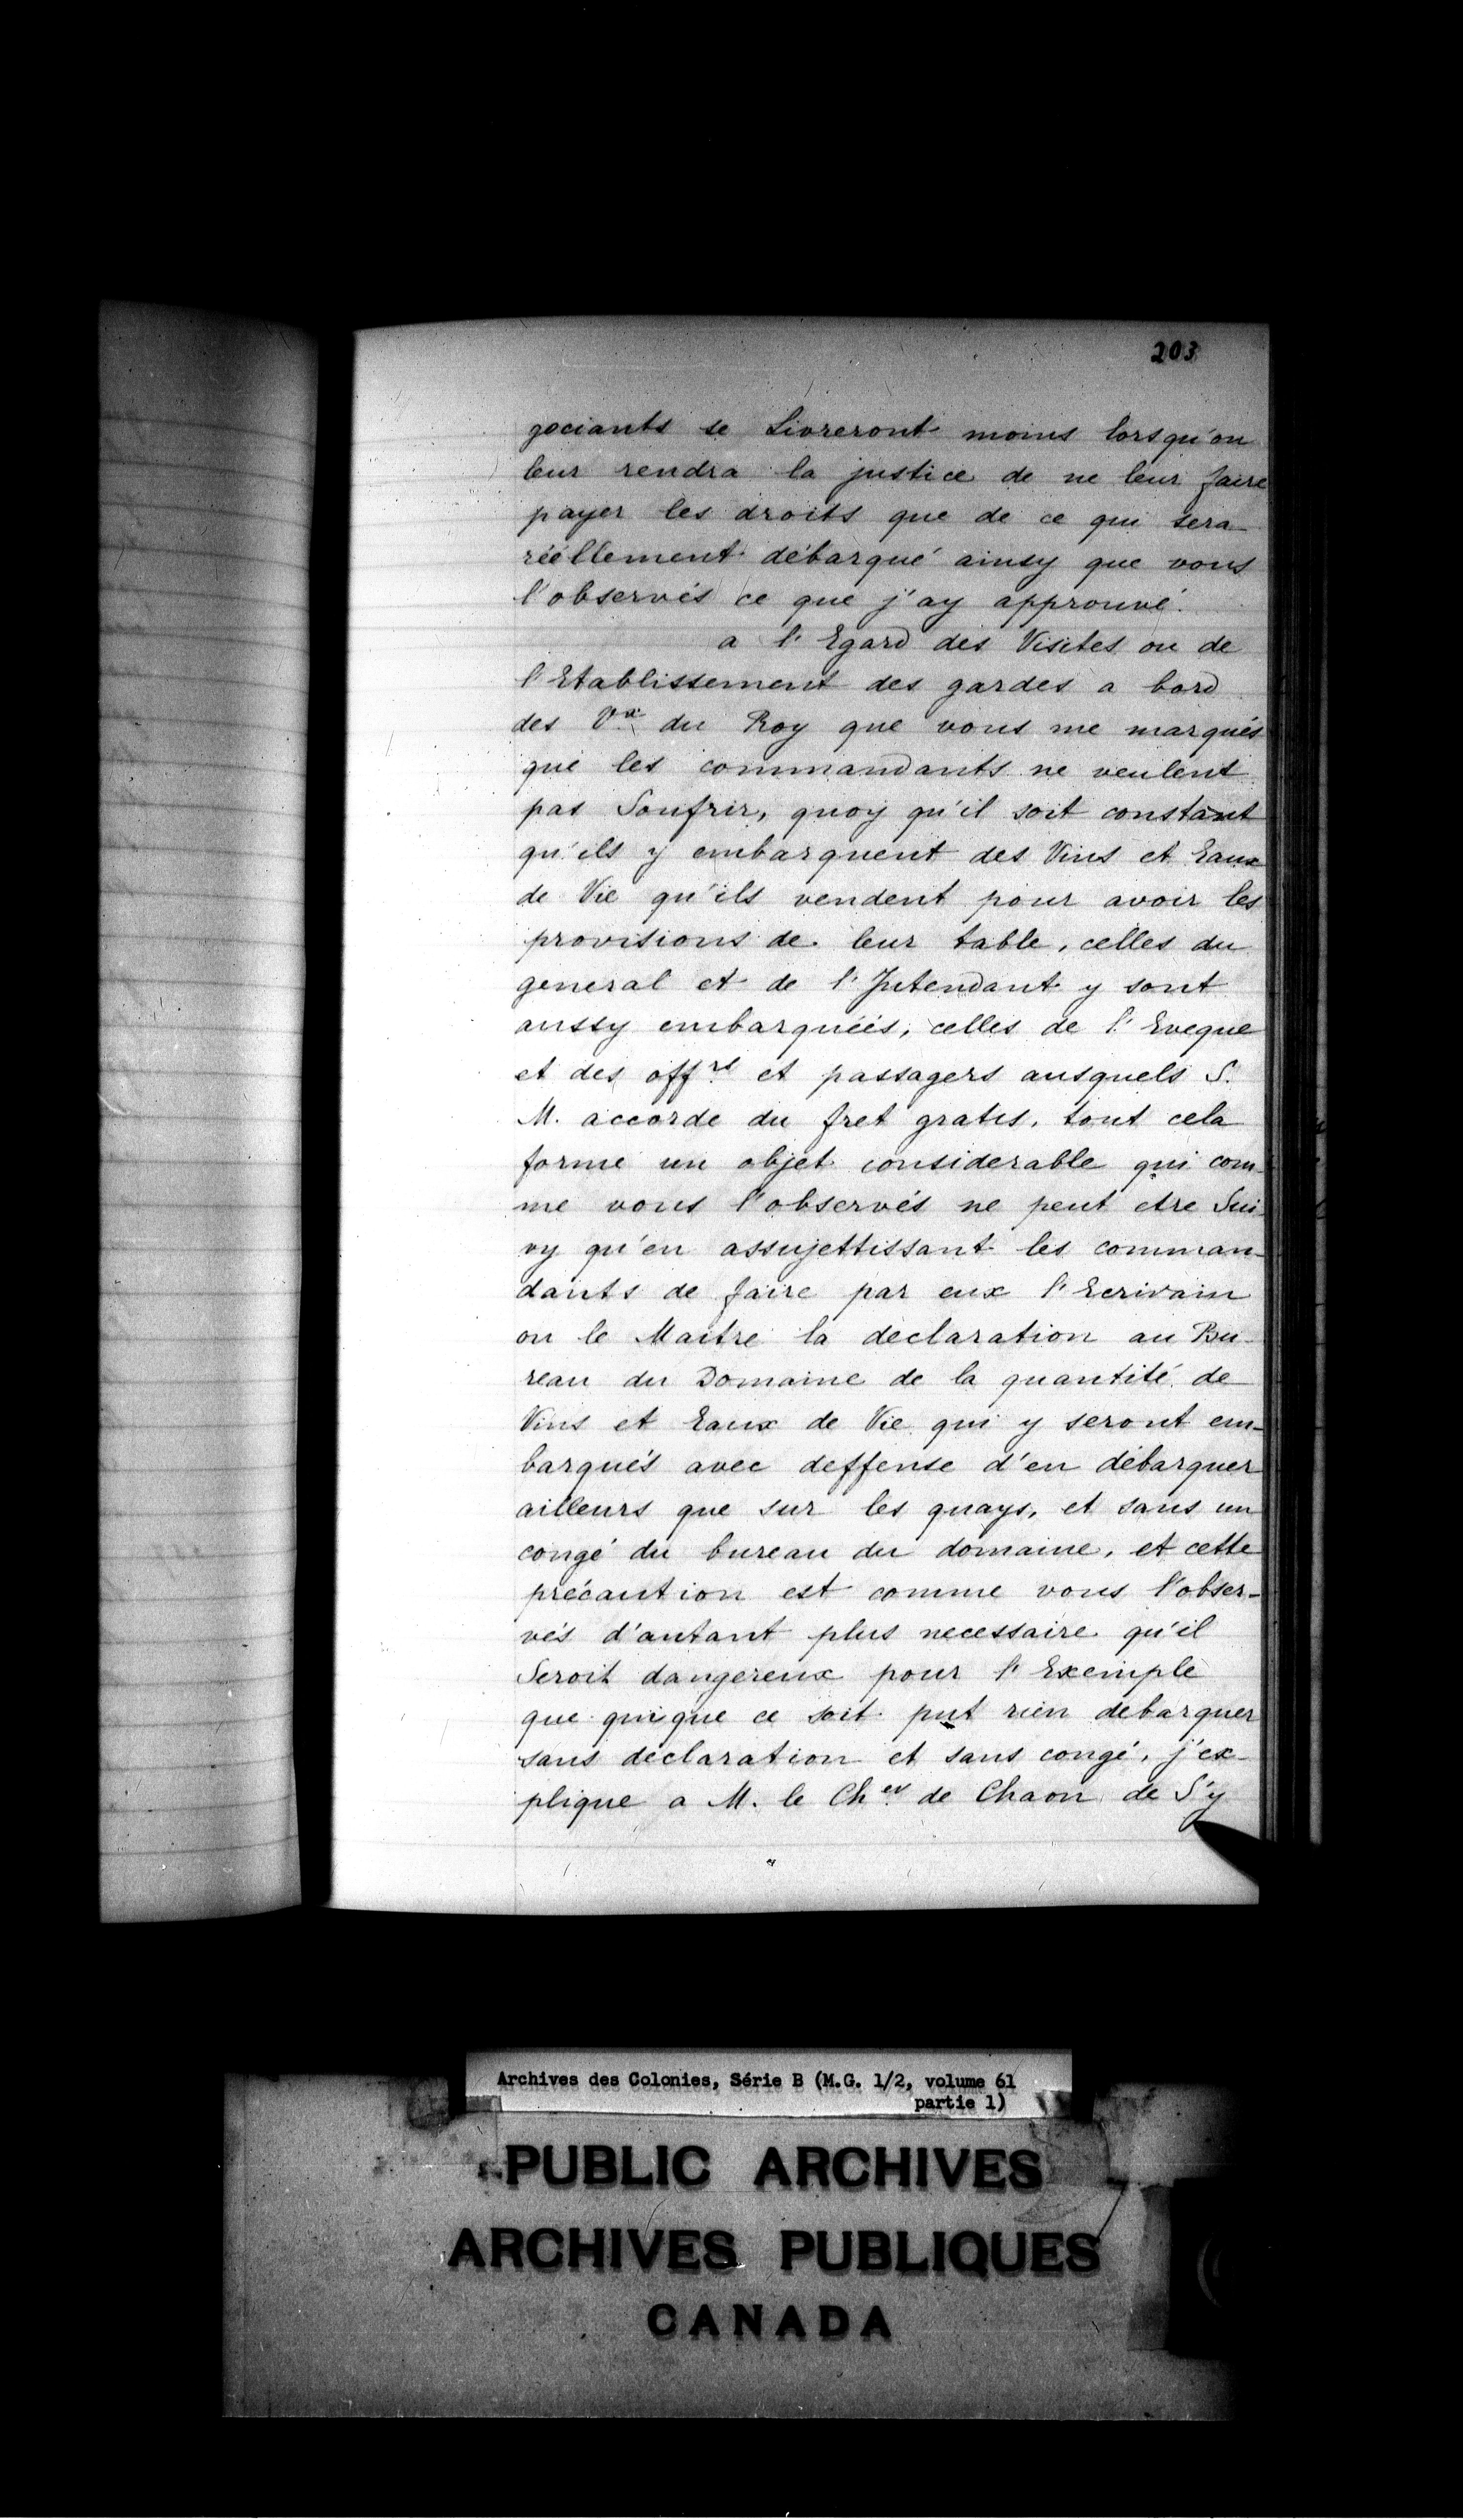 203
gociants se Livreront moins lorsqu'on
leur rendra la justice de ne leur faire
payer les droits que de ce qui sera
réellement débarqué ainsy que vous
l'observés ce que j'ay approuvé.
a l'Egard des Visites ou de
l'Etablissement des gardes a bord
des Vx du Roy que vous me marqués
que les commandants ne veulent
pas Soufrir, quoy qu'il soit constant
qu'ils y embarquent des Vins et Eaux
de Vie qu'ils vendent pour avoir les
provisions de leur table, celles du
general et de l'Intendant y sont
aussy embarquéés, celles de l'Eveque
et des offrs et passagers ausquels S.
M. accorde du fret gratis, tout cela
forme un objet considerable qui com-
me vous l'observés ne peut etre Sui-
vy qu'en assujettissant les comman-
dants de faire par eux l'Ecrivain
ou le Maitre la déclaration au Bu-
reau du Domaine de la quantité de
Vins et Eaux de Vie qui y seront em-
barqués avec deffense d'en débarquer
ailleurs que sur les quays, et sans un
congé du bureau du domaine, et cette
précaution est comme vous l'obser-
vés d'autant plus necessaire qu'il
Seroit dangereux pour l'Exemple
que quique ce soit put rien debarquer
sans déclaration et sans congé, j'ex-
plique a M. le Cher de Chaon de S'y
Archives des Colonies, Série B (M.G. 1/2, volume 61
partie 1)
PUBLIC ARCHIVES
ARCHIVES PUBLIQUES
CANADA